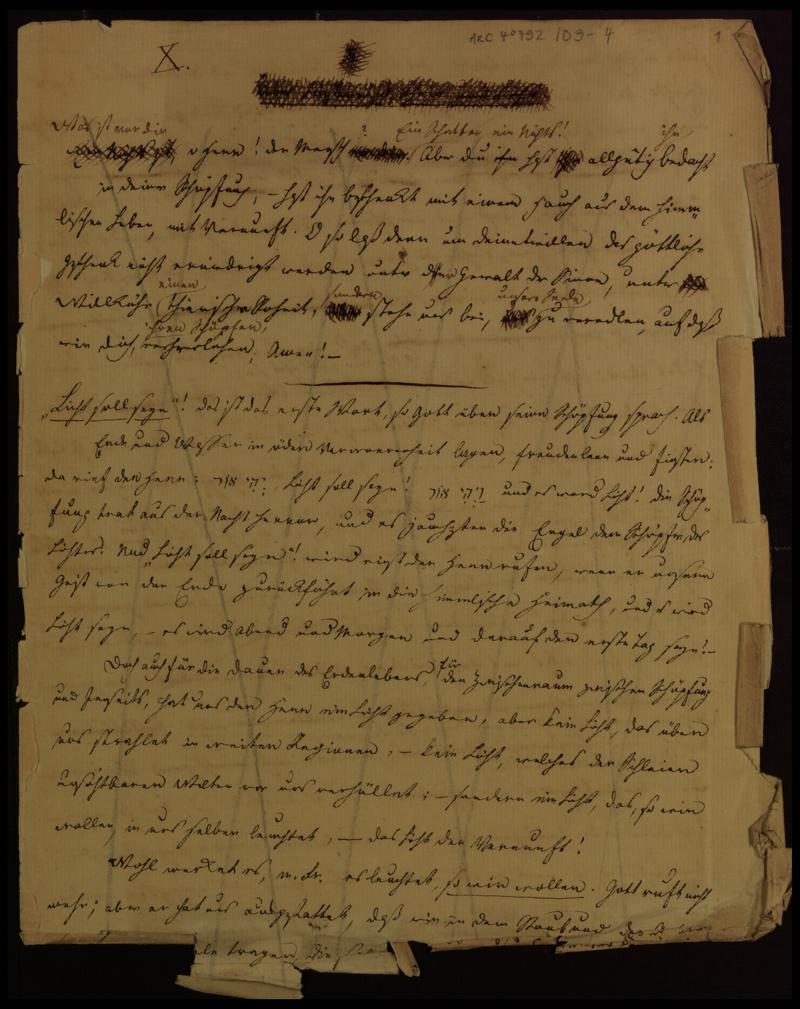 ARC 4° 792 /D9-4
1
X.
Was ist vor dir ? Ein Schatten ein Nichts! ihn
o Herr! der Mensch Aber du hast allgütig bedacht
in deiner Schöpfung, – hast ihn beschenkt mit einem Hauch aus dem himm-
lischen Leben, mit Vernunft. O so laß denn um deinetwillen das göttliche
Geschenk nicht erniedrigt werden unter der Gewalt der Sinne, unter
einen sondern unsere Seele
Willkühr thierischer Roheit, stehe uns bei, zu veredlen, auf daß
ihren Schöpfer
wir dich, verherrlichen, Amen! –
„Licht soll seyn"! das ist das erste Wort, so Gott über seine Schöpfung sprach. Als
Erde und Wasser in öder Verworrenheit lagen, freudenleer und finster;
da rief der Herr: יהי אור, Licht soll seyn! ויהי אור und es ward Licht! die Schöp-
fung trat aus der Nacht hervor, und es jauchzten die Engel dem Schöpfer des
Lichtes. Und „Licht soll seyn"! wird einst der Herr rufen, wenn er unsern
Geist von der Erde zurückführt in die himmlische Heimath, und es wird
Licht seyn, – es wird Abend und Morgen und darauf der erste Tag seyn! –
Doch auch für die Dauer des Erdenlebens, für den Zwischenraum zwischen Schöpfung
und Jenseits, hat uns der Herr ein Licht gegeben, aber kein Licht, das über
uns strahlet in weiten Regionen, – kein Licht, welches der Schleier
unsichtbarer Welten vor uns verhüllet; – sondern ein Licht, das, so wir
wollen, in uns selber leuchtet, – das Licht der Vernunft!
Wohl merket es, m. Fr. es leuchtet, so wir wollen. Gott ruft nicht
mehr; aber er hat uns ausgestattet, daß wir in dem Staub und
tragen, die